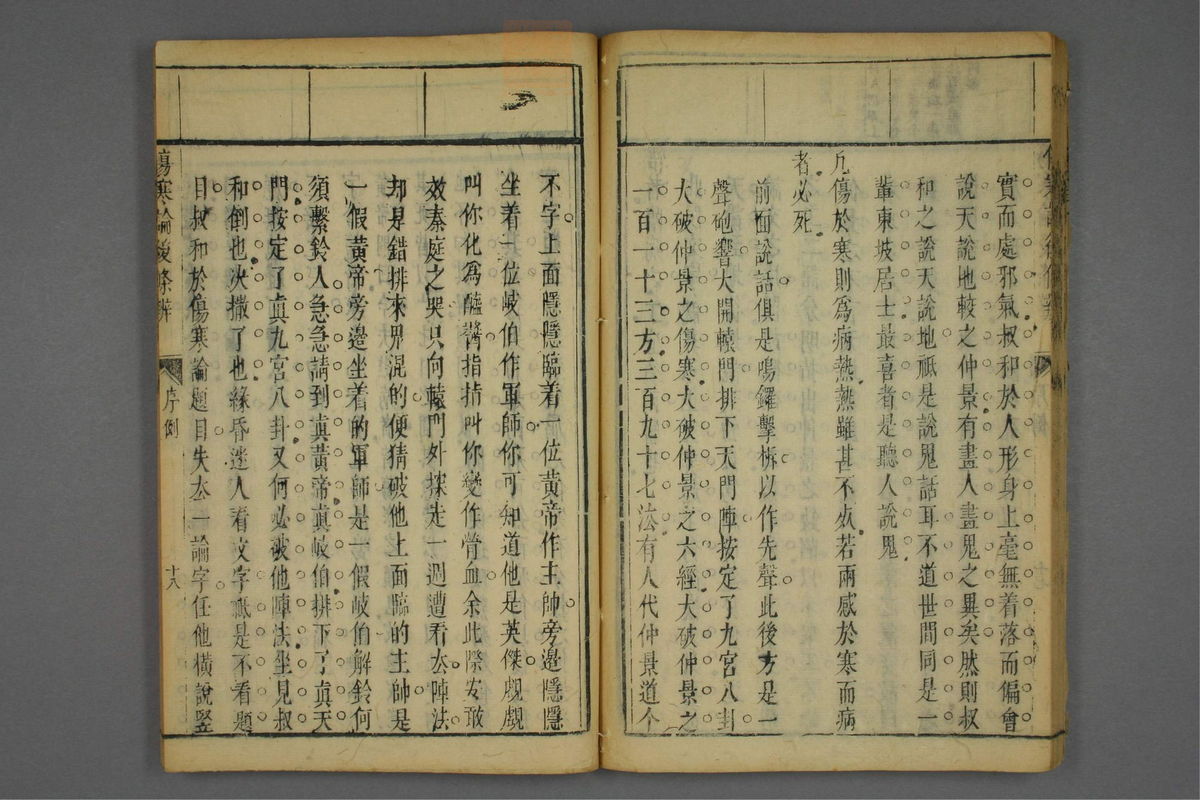 實而處邪氣叔和於人形身上毫無着落而偏會
說天說地較之仲景有畫人畫鬼之異矣然則叔
和之說天說地祇是說鬼話耳不道世間同是一
輩東坡居士最喜者是聽人說鬼
凡傷於寒則爲病熱熱雖甚不死若兩感於寒而病
者必死
前面說話俱是鳴鑼擊柝以作先聲此後方是一
聲砲響大開轅門排下天門陣按定了九宮八卦
大破仲景之傷寒大破仲景之六經大破仲景之
一百一十三方三百九十七法有人代仲景道个
不字上面隱隱臨着一位黃帝作主帥旁邊隱隱
坐着一位岐伯作軍師你可知道他是英傑覷覷
叫你化爲醯醬指指叫你變作膋血余此際安敢
效秦庭之哭只向轅門外探走一週遭看厺陣法
却是錯排來界混的便猜破他上面臨的主帥是
一假黃帝旁邊坐着的軍師是一假岐伯解鈴何
須繫鈴人急急請到眞黃帝眞岐伯排下了眞天
門按定了眞九宮八卦又何必破他陣法坐見叔
和倒也決撒了也緣昏迷人看文字祇是不看題
目叔和於傷寒論題目失厺一論字任他橫說竪
傷寒論後條辨
序例
十八